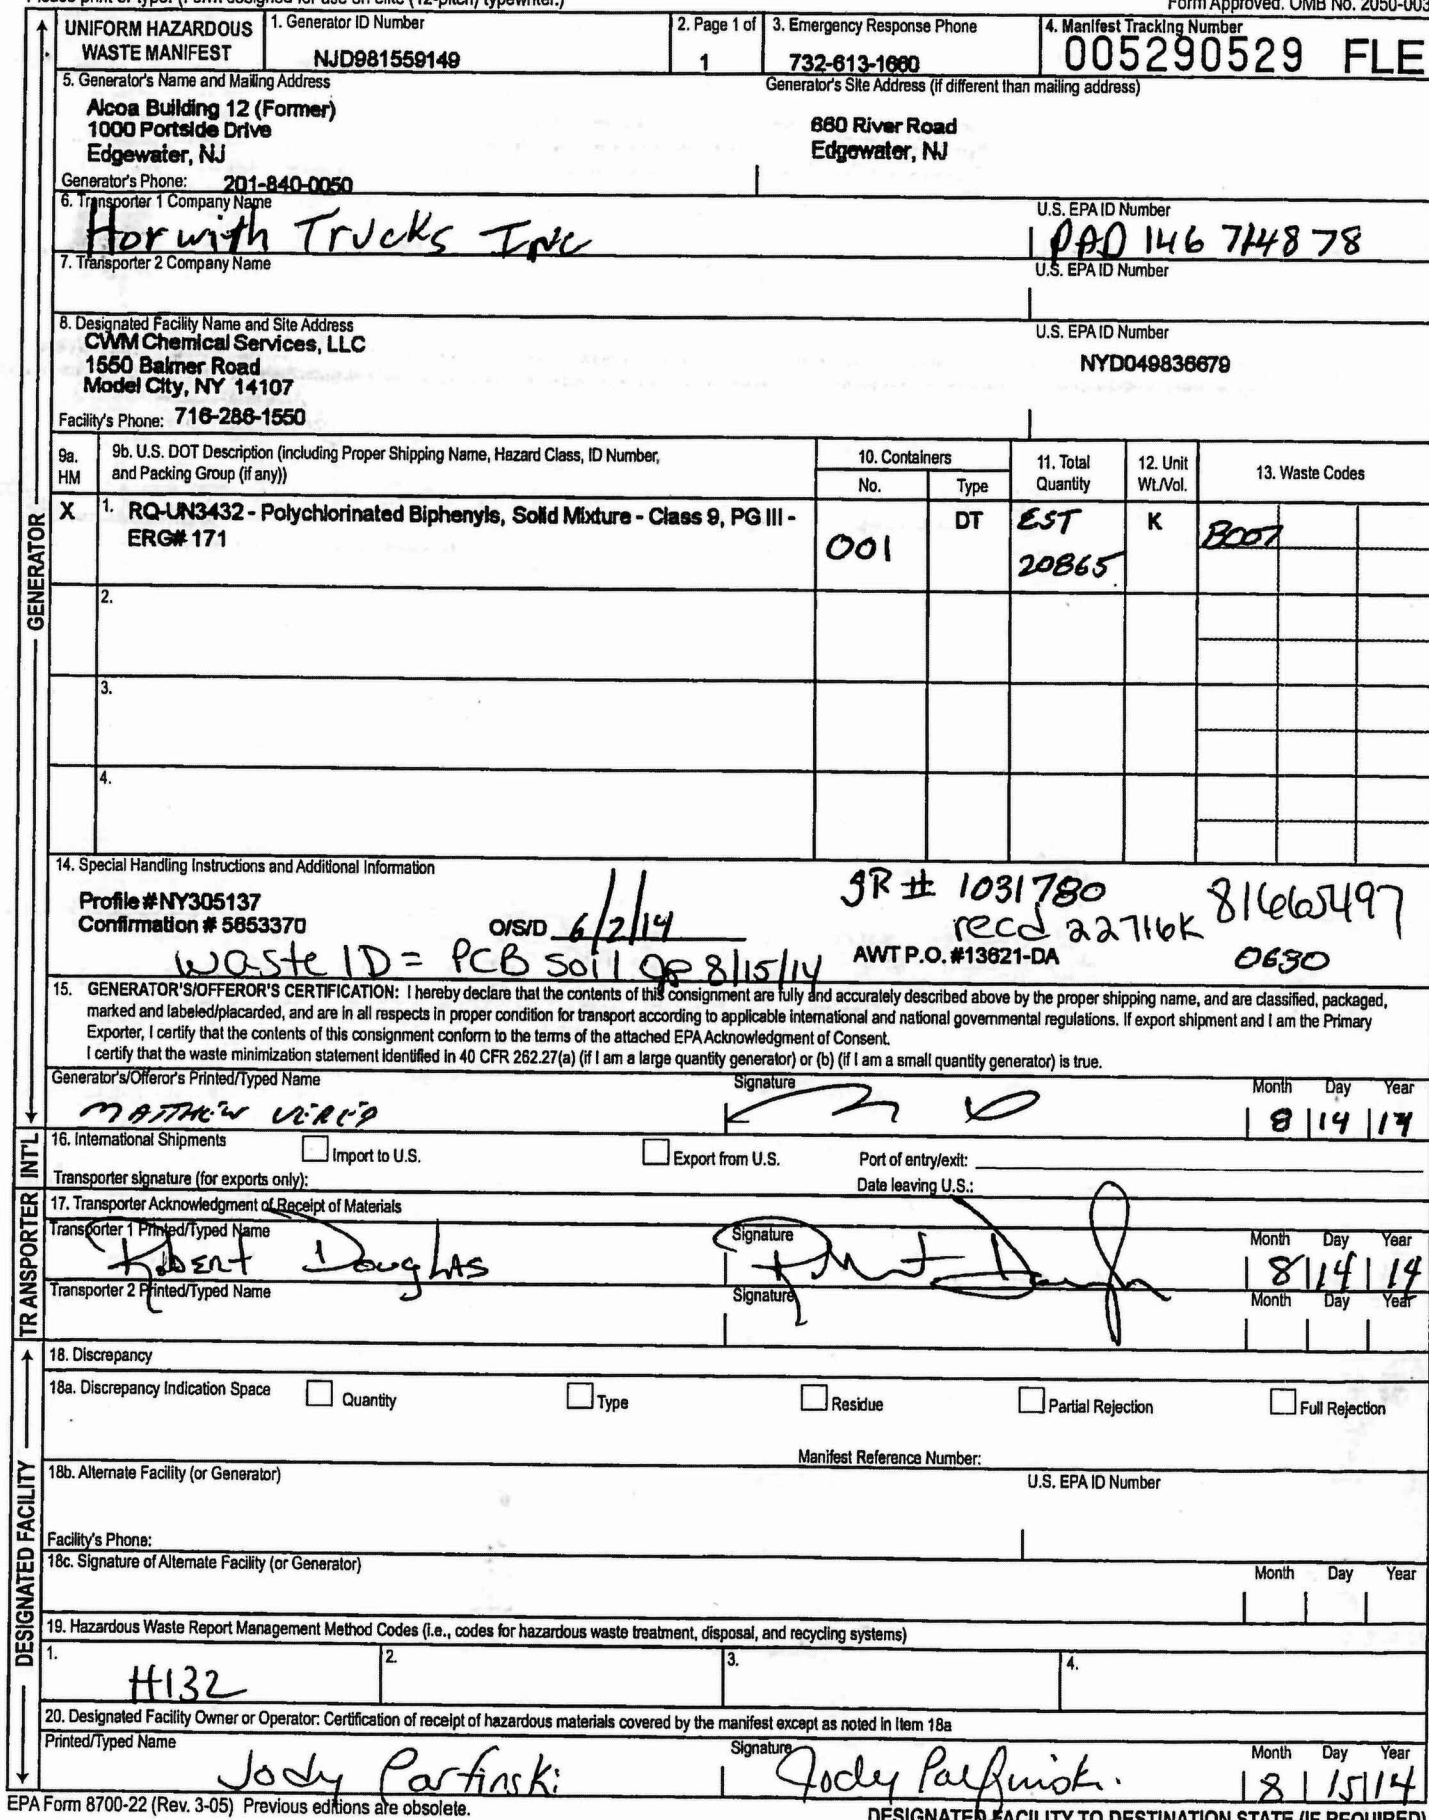 Form Approved. OMB No. 2050-003
UNIFORM HAZARDOUS WASTE MANIFEST
1. Generator ID Number
NJD981559149
2. Page 1 of
1
3. Emergency Response Phone
732-613-1660
4. Manifest Tracking Number
005290529 FLE
5. Generator's Name and Mailing Address
Alcoa Building 12 (Former)
1000 Portside Drive
Edgewater, NJ
Generator's Phone: 201-840-0050
Generator's Site Address (if different than mailing address)
660 River Road
Edgewater, NJ
6. Transporter 1 Company Name
Horwith Trucks Inc
U.S. EPA ID Number
PAD 146714878
7. Transporter 2 Company Name
U.S. EPA ID Number
8. Designated Facility Name and Site Address
CWM Chemical Services, LLC
1550 Balmer Road
Model City, NY 14107
Facility's Phone: 716-286-1550
U.S. EPA ID Number
NYD049836679
9a. HM
9b. U.S. DOT Description (including Proper Shipping Name, Hazard Class, ID Number,
and Packing Group (if any))
10. Containers
No.
Type
11. Total Quantity
12. Unit Wt./Vol.
13. Waste Codes
X
1. RQ-UN3432 - Polychlorinated Biphenyls, Solid Mixture - Class 9, PG III -
ERG# 171
001
DT
EST
20865
K
B007
2.
3.
4.
14. Special Handling Instructions and Additional Information
Profile #NY305137
Confirmation # 5653370
O/S/D 6/2/14
SR # 1031780
recd 22716K
81665497
0630
AWT P.O. #13621-DA
Waste ID = PCB soil 8/15/14
15. GENERATOR'S/OFFEROR'S CERTIFICATION: I hereby declare that the contents of this consignment are fully and accurately described above by the proper shipping name, and are classified, packaged,
marked and labeled/placarded, and are in all respects in proper condition for transport according to applicable international and national governmental regulations. If export shipment and I am the Primary
Exporter, I certify that the contents of this consignment conform to the terms of the attached EPA Acknowledgment of Consent.
I certify that the waste minimization statement identified in 40 CFR 262.27(a) (if I am a large quantity generator) or (b) (if I am a small quantity generator) is true.
Generator's/Offeror's Printed/Typed Name
MATTHEW
Signature
Month Day Year
8 14 14
16. International Shipments
Import to U.S.
Export from U.S.
Port of entry/exit:
Transporter signature (for exports only):
Date leaving U.S.:
17. Transporter Acknowledgment of Receipt of Materials
Transporter 1 Printed/Typed Name
Robert Douglas
Signature
Month Day Year
8 14 14
Transporter 2 Printed/Typed Name
Signature
Month Day Year
18. Discrepancy
18a. Discrepancy Indication Space
Quantity
Type
Residue
Partial Rejection
Full Rejection
Manifest Reference Number:
18b. Alternate Facility (or Generator)
U.S. EPA ID Number
Facility's Phone:
18c. Signature of Alternate Facility (or Generator)
Month Day Year
19. Hazardous Waste Report Management Method Codes (i.e., codes for hazardous waste treatment, disposal, and recycling systems)
1.
H132
2.
3.
4.
20. Designated Facility Owner or Operator: Certification of receipt of hazardous materials covered by the manifest except as noted in Item 18a
Printed/Typed Name
Jody Parfinski
Signature
Jody Parfinski
Month Day Year
8 15 14
EPA Form 8700-22 (Rev. 3-05) Previous editions are obsolete.
DESIGNATED FACILITY TO DESTINATION STATE (IF REQUIRED)
GENERATOR
INT'L
TRANSPORTER
DESIGNATED FACILITY